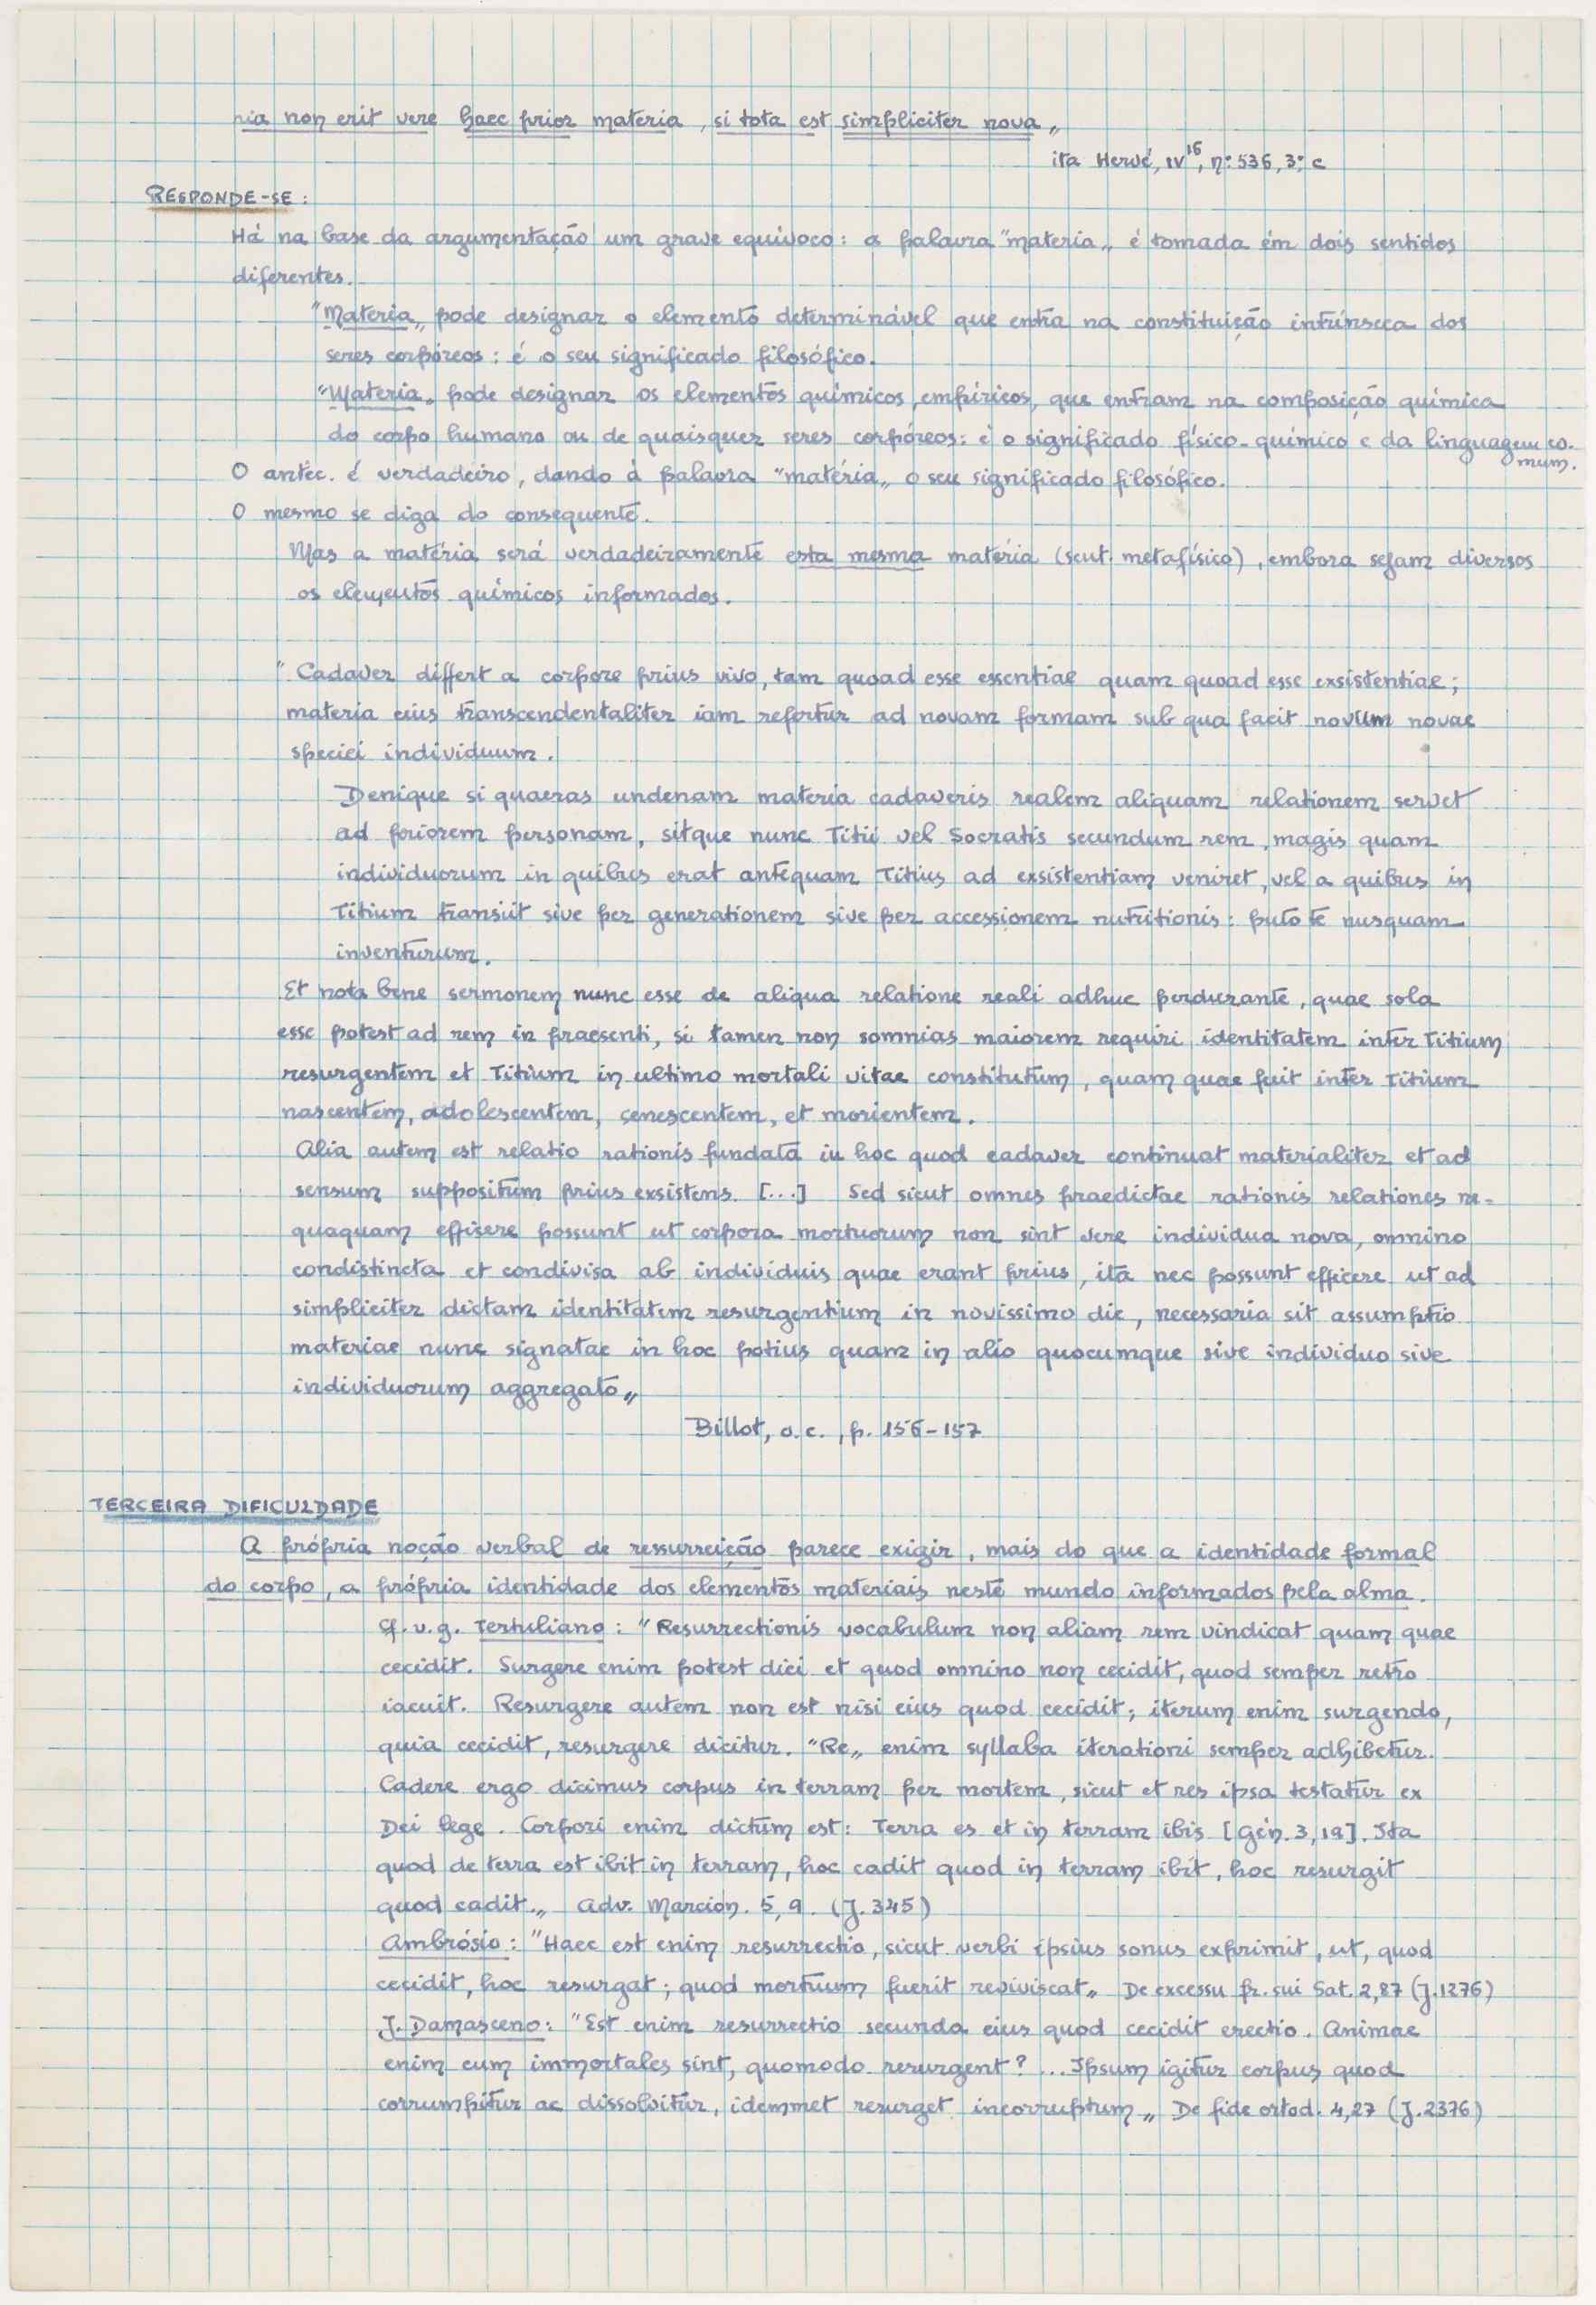 ria non erit vere haec prior materia, si tota est simpliciter nova„
ita Hervé, IV¹⁶, n.º 536, 3.º, c
RESPONDE-SE:
Há na base da argumentação um grave equívoco: a palavra "materia„ é tomada em dois sentidos
diferentes.
"Materia„ pode designar o elemento determinável que entra na constituição intrínseca dos
seres corpóreos: é o seu significado filosófico.
"Materia„ pode designar os elementos químicos, empíricos, que entram na composição química
do corpo humano ou de quaisquer seres corpóreos: é o significado físico-químico e da linguagem co-
mum.
O antec. é verdadeiro, dando à palavra "matéria„ o seu significado filosófico.
O mesmo se diga do consequente.
Mas a matéria será verdadeiramente esta mesma matéria (sent. metafísico), embora sejam diversos
os elementos químicos informados.
"Cadaver differt a corpore prius vivo, tam quoad esse essentiae quam quoad esse exsistentiae;
materia eius transcendentaliter iam refertur ad novam formam sub qua facit novum novae
speciei individuum.
Denique si quaeras undenam materia cadaveris realem aliquam relationem servet
ad priorem personam, sitque nunc Titii vel Socratis secundum rem, magis quam
individuorum in quibus erat antequam Titius ad exsistentiam veniret, vel a quibus in
Titium transiit sive per generationem sive per accessionem nutritionis: puto te nusquam
inventurum.
Et nota bene sermonem nunc esse de aliqua relatione reali adhuc perdurante, quae sola
esse potest ad rem in praesenti, si tamen non somnias maiorem requiri identitatem inter Titium
resurgentem et Titium in ultimo mortali vitae constitutum, quam quae fuit inter Titium
nascentem, adolescentem, senescentem, et morientem.
Alia autem est relatio rationis fundata in hoc quod cadaver continuat materialiter et ad
sensum suppositum prius exsistens. [...] Sed sicut omnes praedictae rationis relationes ne-
quaquam efficere possunt ut corpora mortuorum non sint vere individua nova, omnino
condistincta et condivisa ab individuis quae erant prius, ita nec possunt efficere ut ad
simpliciter dictam identitatem resurgentium in novissimo die, necessaria sit assumptio
materiae nunc signatae in hoc potius quam in alio quocumque sive individuo sive
individuorum aggregato„
Billot, o.c., p. 156-157
TERCEIRA DIFICULDADE
A própria noção verbal de ressurreição parece exigir, mais do que a identidade formal
do corpo, a própria identidade dos elementos materiais neste mundo informados pela alma.
Cf. v.g. Tertuliano: "Resurrectionis vocabulum non aliam rem vindicat quam quae
cecidit. Surgere enim potest dici et quod omnino non cecidit, quod semper retro
iacuit. Resurgere autem non est nisi eius quod cecidit; iterum enim surgendo,
quia cecidit, resurgere dicitur. "Re„ enim syllaba iterationi semper adhibetur.
Cadere ergo dicimus corpus in terram per mortem, sicut et res ipsa testatur ex
Dei lege. Corpori enim dictum est: Terra es et in terram ibis [Gén. 3,19]. Ita
quod de terra est ibit in terram, hoc cadit quod in terram ibit, hoc resurgit
quod cadit.„ Adv. Marcion. 5, 9. (J.345)
Ambrósio: "Haec est enim resurrectio, sicut verbi ipsius sonus exprimit, ut, quod
cecidit, hoc resurgat; quod mortuum fuerit reviviscat„ De excessu fr. sui Sat. 2,87 (J.1276)
J. Damasceno: "Est enim resurrectio secunda eius quod cecidit erectio. Animae
enim cum immortales sint, quomodo resurgent? ... Ipsum igitur corpus quod
corrumpitur ac dissolvitur, idemmet resurget incorruptum„ De fide ortod. 4,27 (J.2376)